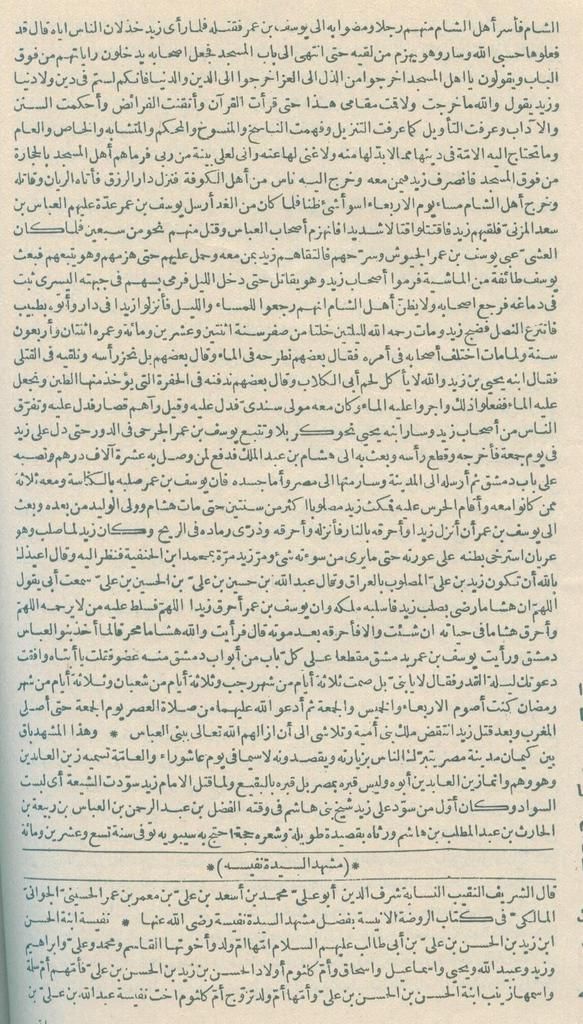 الشام فأسر أهل الشام منهم رجلا ومضوا به الى يوسف بن عمر فقتله فلما رأى زيد خذلان الناس اياه قال قد
فعلوها حسبى الله وسار وهو يهزم من لقيه حتى انتهى الى باب المسجد فجعل أصحابه يدخلون راياتهم من فوق
الباب ويقولون يا أهل المسجد اخرجوا من الذل الى العز اخرجوا الى الدين والدنيا فانكم لستم فى دين ولا دنيا
وزيد يقول والله ما خرجت ولا قت مقامى هذا حتى قرأت القرآن وأتقنت الفرائض وأحكمت السنن
والآداب وعرفت التأويل كما عرفت التنزيل وفهمت الناسخ والمنسوخ والمحكم والمتشابه والخاص والعام
وما تحتاج اليه الامة فى دينها مما لا بد لها منه ولا غنى لها عنه وانى لعلى بينة من ربى فرماهم أهل المسجد بالحجارة
من فوق المسجد فانصرف زيد فيمن معه وخرج اليه ناس من أهل الكوفة فنزل دار الرزق فأتاه الريان وقاتله
وخرج أهل الشام مساء يوم الاربعاء اسوأ شئ ظنا فلما كان من الغد أرسل يوسف بن عمر عدّة عليهم العباس بن
سعد المزنى فلقيهم زيد فاقتتلوا قتالا شديدا فانهزم أصحاب العباس وقتل منهم نحو من سبعين فلما كان
العشى عبى يوسف بن عمر الجيوش وسرّحهم فالتقاهم زيد بمن معه وحمل عليهم حتى هزمهم وهو يتبعهم فبعث
يوسف طائفة من الناشبة فرموا أصحاب زيد وهو يقاتل حتى دخل الليل فرمى بسهم فى جبهته اليسرى ثبت
فى دماغه فرجع أصحابه ولا يظنّ أهل الشام انهم رجعوا للمساء والليل فأنزلوا زيدا فى دار وأتوه بطبيب
فانتزع النصل فضج زيد ومات رحمه الله لليلتين خلتا من صفر سنة اثنتين وعشرين ومائة وعمره اثنتان وأربعون
سنة ولما مات اختلف أصحابه فى أمره فقال بعضهم نطرحه فى الماء وقال بعضهم بل نحز رأسه ونلقيه فى القتلى
فقال ابنه يحيى بن زيد والله لا يأكل لحم أبى الكلاب وقال بعضهم ندفنه فى الحفرة التى يؤخذ منها الطين ونجعل
عليه الماء ففعلوا ذلك واجروا عليه الماء وكان معه مولى سندى فدل عليه وقيل رآهم قصار فدل عليه وتفرّق
الناس من أصحاب زيد وسار ابنه يحيى نحو كربلا وتتبع يوسف بن عمر الجرحى فى الدور حتى دل على زيد
فى يوم جمعة فأخرجه وقطع رأسه وبعث به الى هشام بن عبد الملك فدفع لمن وصل به عشرة آلاف درهم ونصبه
على باب دمشق ثم أرسله الى المدينة وسار منها الى مصر وأما جسده فان يوسف بن عمر صلبه بالكناسة ومعه ثلاثة
ممن كانوا معه وأقام الحرس عليه فمكث زيد مصلوبا اكثر من سنتين حتى مات هشام وولى الوليد من بعده وبعث
الى يوسف بن عمر أن أنزل زيدا وأحرقه بالنار فأنزله وأحرقه وذرّى رماده فى الريح وكان زيد لما صلب وهو
عريان استرخى بطنه على عورته حتى ما يرى من سوءته شئ ومرّ زيد مرّة بمحمد ابن الحنفية فنظر اليه وقال اعيذك
بالله أن تكون زيد بن علىّ المصلوب بالعراق وقال عبد الله بن حسين بن علىّ بن الحسين بن علىّ سمعت أبى يقول
اللهمّ ان هشاما رضى بصلب زيد فاسلبه ملكه وان يوسف بن عمر أحرق زيدا اللهمّ فسلط عليه من لا يرحمه اللهمّ
وأحرق هشاما فى حياته ان شئت والا فأحرقه بعد موته قال فرأيت والله هشاما محرقا لما أخذ بنو العباس
دمشق ورأيت يوسف بن عمر بدمشق مقطعا على كلّ باب من أبواب دمشق منه عضو فقلت يا أبتاه وافقت
دعوتك ليلة القدر فقال لا يا بنىّ بل صمت ثلاثة أيام من شهر رجب وثلاثة أيام من شعبان وثلاثة أيام من شهر
رمضان كنت أصوم الاربعاء والخميس والجمعة ثم أدعو الله عليهما من صلاة العصر يوم الجمعة حتى أصلى
المغرب وبعد قتل زيد انتقض ملك بنى أمية وتلاشى الى أن ازالهم الله تعالى ببنى العباس * وهذا المشهد باق
بين كيمان مدينة مصر يتبرّك الناس بزيارته ويقصدونه لا سيما فى يوم عاشوراء والعامّة تسميه زين العابدين
وهو وهم وانما زين العابدين أبوه وليس قبره بمصر بل قبره بالبقيع ولما قتل الامام زيد سوّدت الشيعة أى لبست
السواد وكان أوّل من سوّد على زيد شيخ بنى هاشم فى وقته الفضل بن عبد الرحمن بن العباس بن ربيعة بن
الحارث بن عبد المطلب بن هاشم ورثاه بقصيدة طويلة وشعره حجة احتج به سيبويه توفى سنة تسع وعشرين ومائة
*(مشهد السيدة نفيسة)*
قال الشريف النقيب النسابة شرف الدين أبو علىّ محمد بن أسعد بن علىّ بن معمر بن عمر الحسينىّ الجوّانىّ
المالكىّ فى كتاب الروضة الانيسة بفضل مشهد السيدة نفيسة رضى الله عنها * نفيسة ابنة الحسن
ابن زيد بن الحسن بن علىّ بن أبى طالب عليهم السلام امّها امّ ولد وأخوتها القاسم ومحمد وعلىّ وابراهيم
وزيد وعبيد الله ويحيى واسماعيل واسحاق وأمّ كلثوم أولاد الحسن بن زيد بن الحسن بن علىّ فأمّهم أمّ سلمة
واسمها زينب ابنة الحسن بن الحسن بن علىّ وأمّها أمّ ولد تزوّج أمّ كلثوم اخت نفيسة عبد الله بن علىّ بن